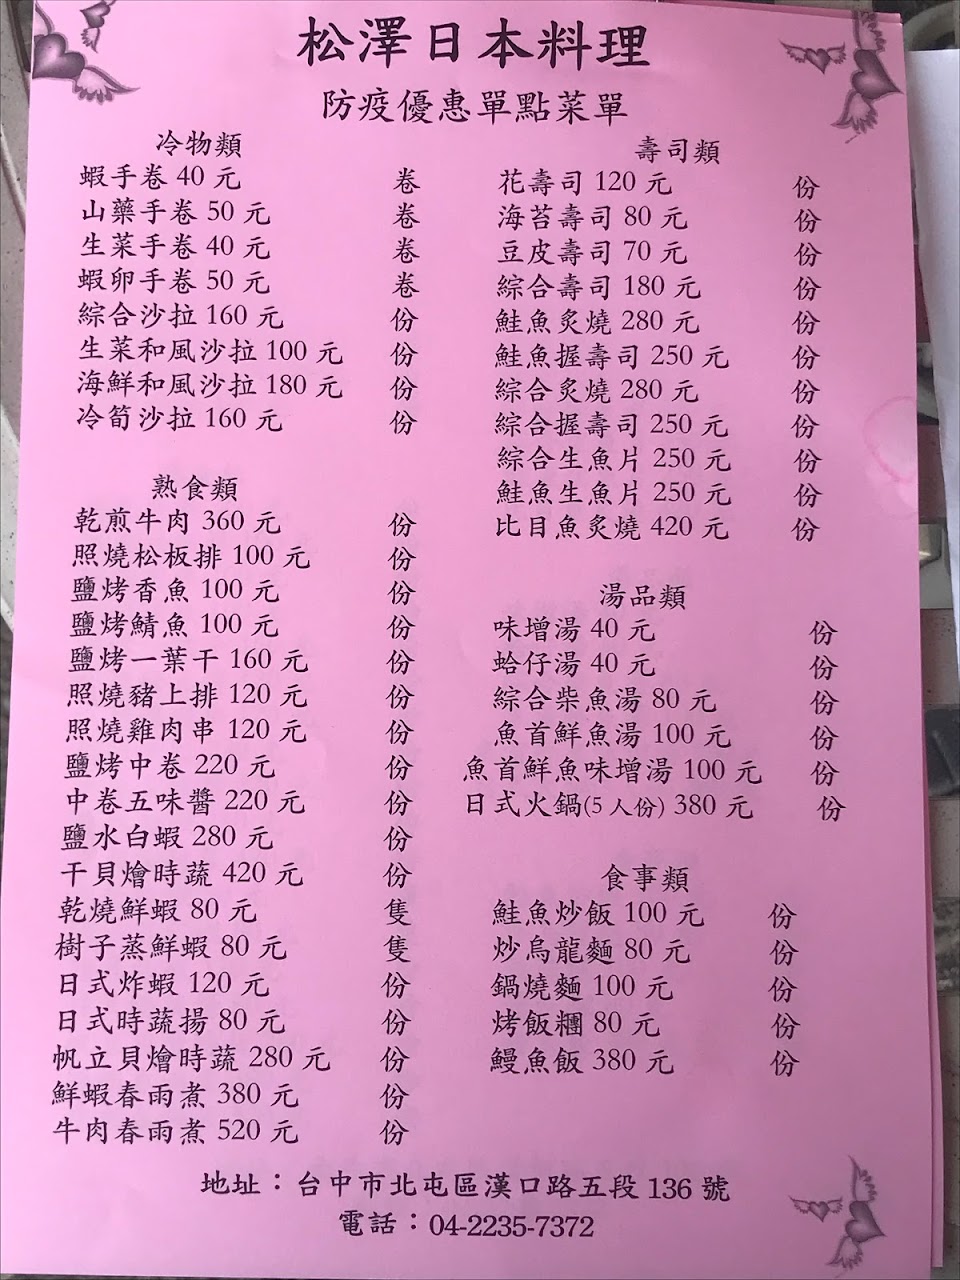 松澤日本料理
防疫優惠單點菜單
冷物類
蝦手卷 40 元 卷
山藥手卷 50 元 卷
生菜手卷 40 元 卷
蝦卵手卷 50 元 卷
綜合沙拉 160 元 份
生菜和風沙拉 100 元 份
海鮮和風沙拉 180 元 份
冷筍沙拉 160 元 份
熟食類
乾煎牛肉 360 元 份
照燒松板排 100 元 份
鹽烤香魚 100 元 份
鹽烤鯖魚 100 元 份
鹽烤一葉干 160 元 份
照燒豬上排 120 元 份
照燒雞肉串 120 元 份
鹽烤中卷 220 元 份
中卷五味醬 220 元 份
鹽水白蝦 280 元 份
干貝燴時蔬 420 元 份
乾燒鮮蝦 80 元 隻
樹子蒸鮮蝦 80 元 隻
日式炸蝦 120 元 份
日式時蔬揚 80 元 份
帆立貝燴時蔬 280 元 份
鮮蝦春雨煮 380 元 份
牛肉春雨煮 520 元 份
壽司類
花壽司 120 元 份
海苔壽司 80 元 份
豆皮壽司 70 元 份
綜合壽司 180 元 份
鮭魚炙燒 280 元 份
鮭魚握壽司 250 元 份
綜合炙燒 280 元 份
綜合握壽司 250 元 份
綜合生魚片 250 元 份
鮭魚生魚片 250 元 份
比目魚炙燒 420 元 份
湯品類
味增湯 40 元 份
蛤仔湯 40 元 份
綜合柴魚湯 80 元 份
魚首鮮魚湯 100 元 份
魚首鮮魚味增湯 100 元 份
日式火鍋(5 人份) 380 元 份
食事類
鮭魚炒飯 100 元 份
炒烏龍麵 80 元 份
鍋燒麵 100 元 份
烤飯糰 80 元 份
鰻魚飯 380 元 份
地址：台中市北屯區漢口路五段 136 號
電話：04-2235-7372